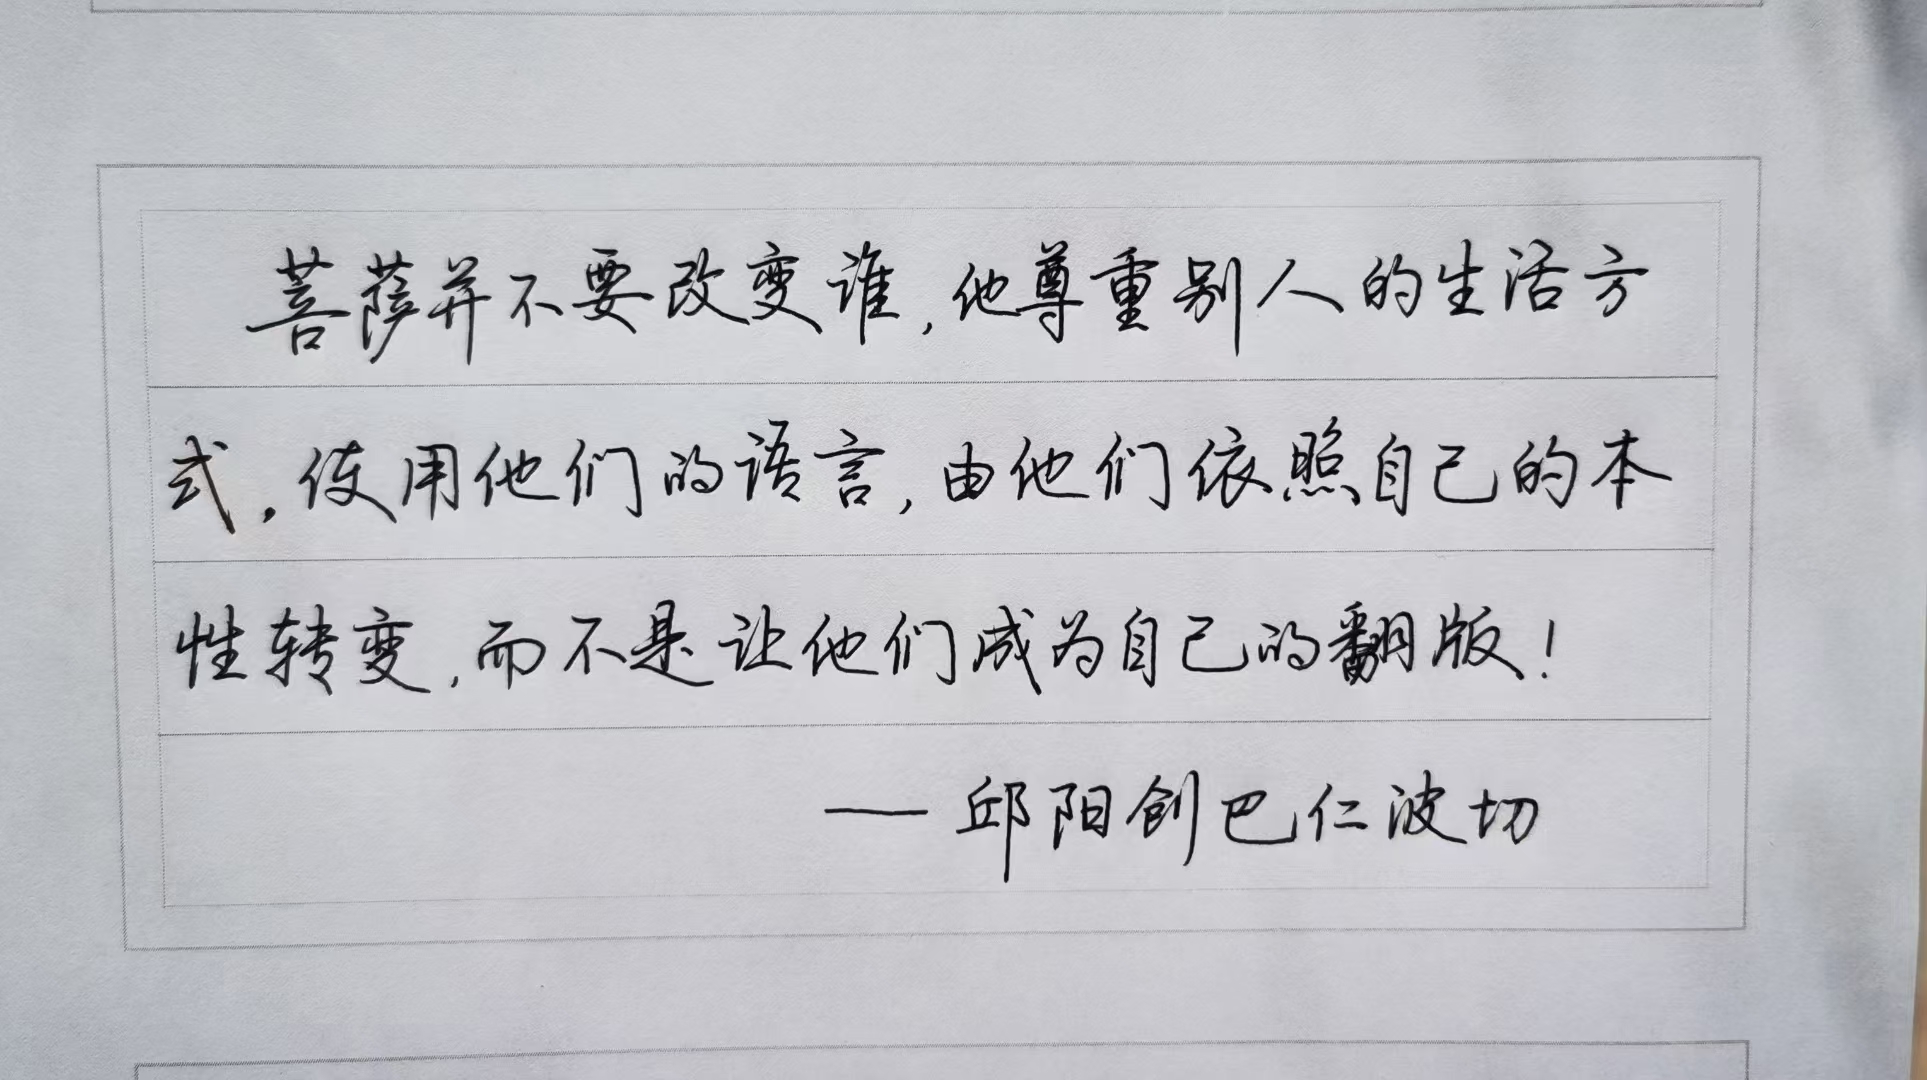 菩萨并不要改变谁，他尊重别人的生活方
式，使用他们的语言，由他们依照自己的本
性转变，而不是让他们成为自己的翻版！
—— 邱阳创巴仁波切